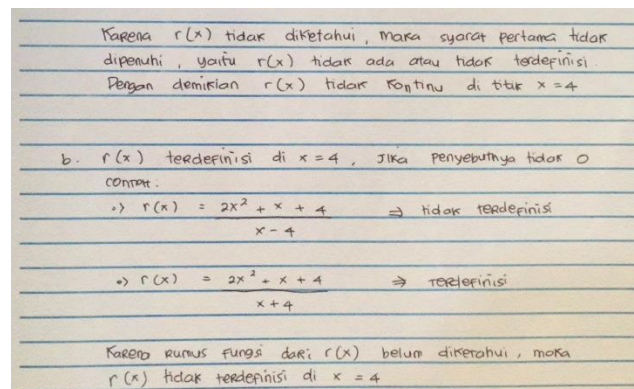 Karena r(x) tidak diketahui, maka syarat pertama tidak
dipenuhi, yaitu r(x) tidak ada atau tidak terdefinisi.
Dengan demikian r(x) tidak kontinu di titik x = 4
b. r(x) terdefinisi di x = 4, Jika penyebutnya tidak 0
contoh:
•> r(x) = (2x² + x + 4)/(x - 4) ⇒ tidak terdefinisi
•> r(x) = (2x² + x + 4)/(x + 4) ⇒ Terdefinisi
Karena Rumus Fungsi dari r(x) belum diketahui, maka
r(x) tidak terdefinisi di x = 4